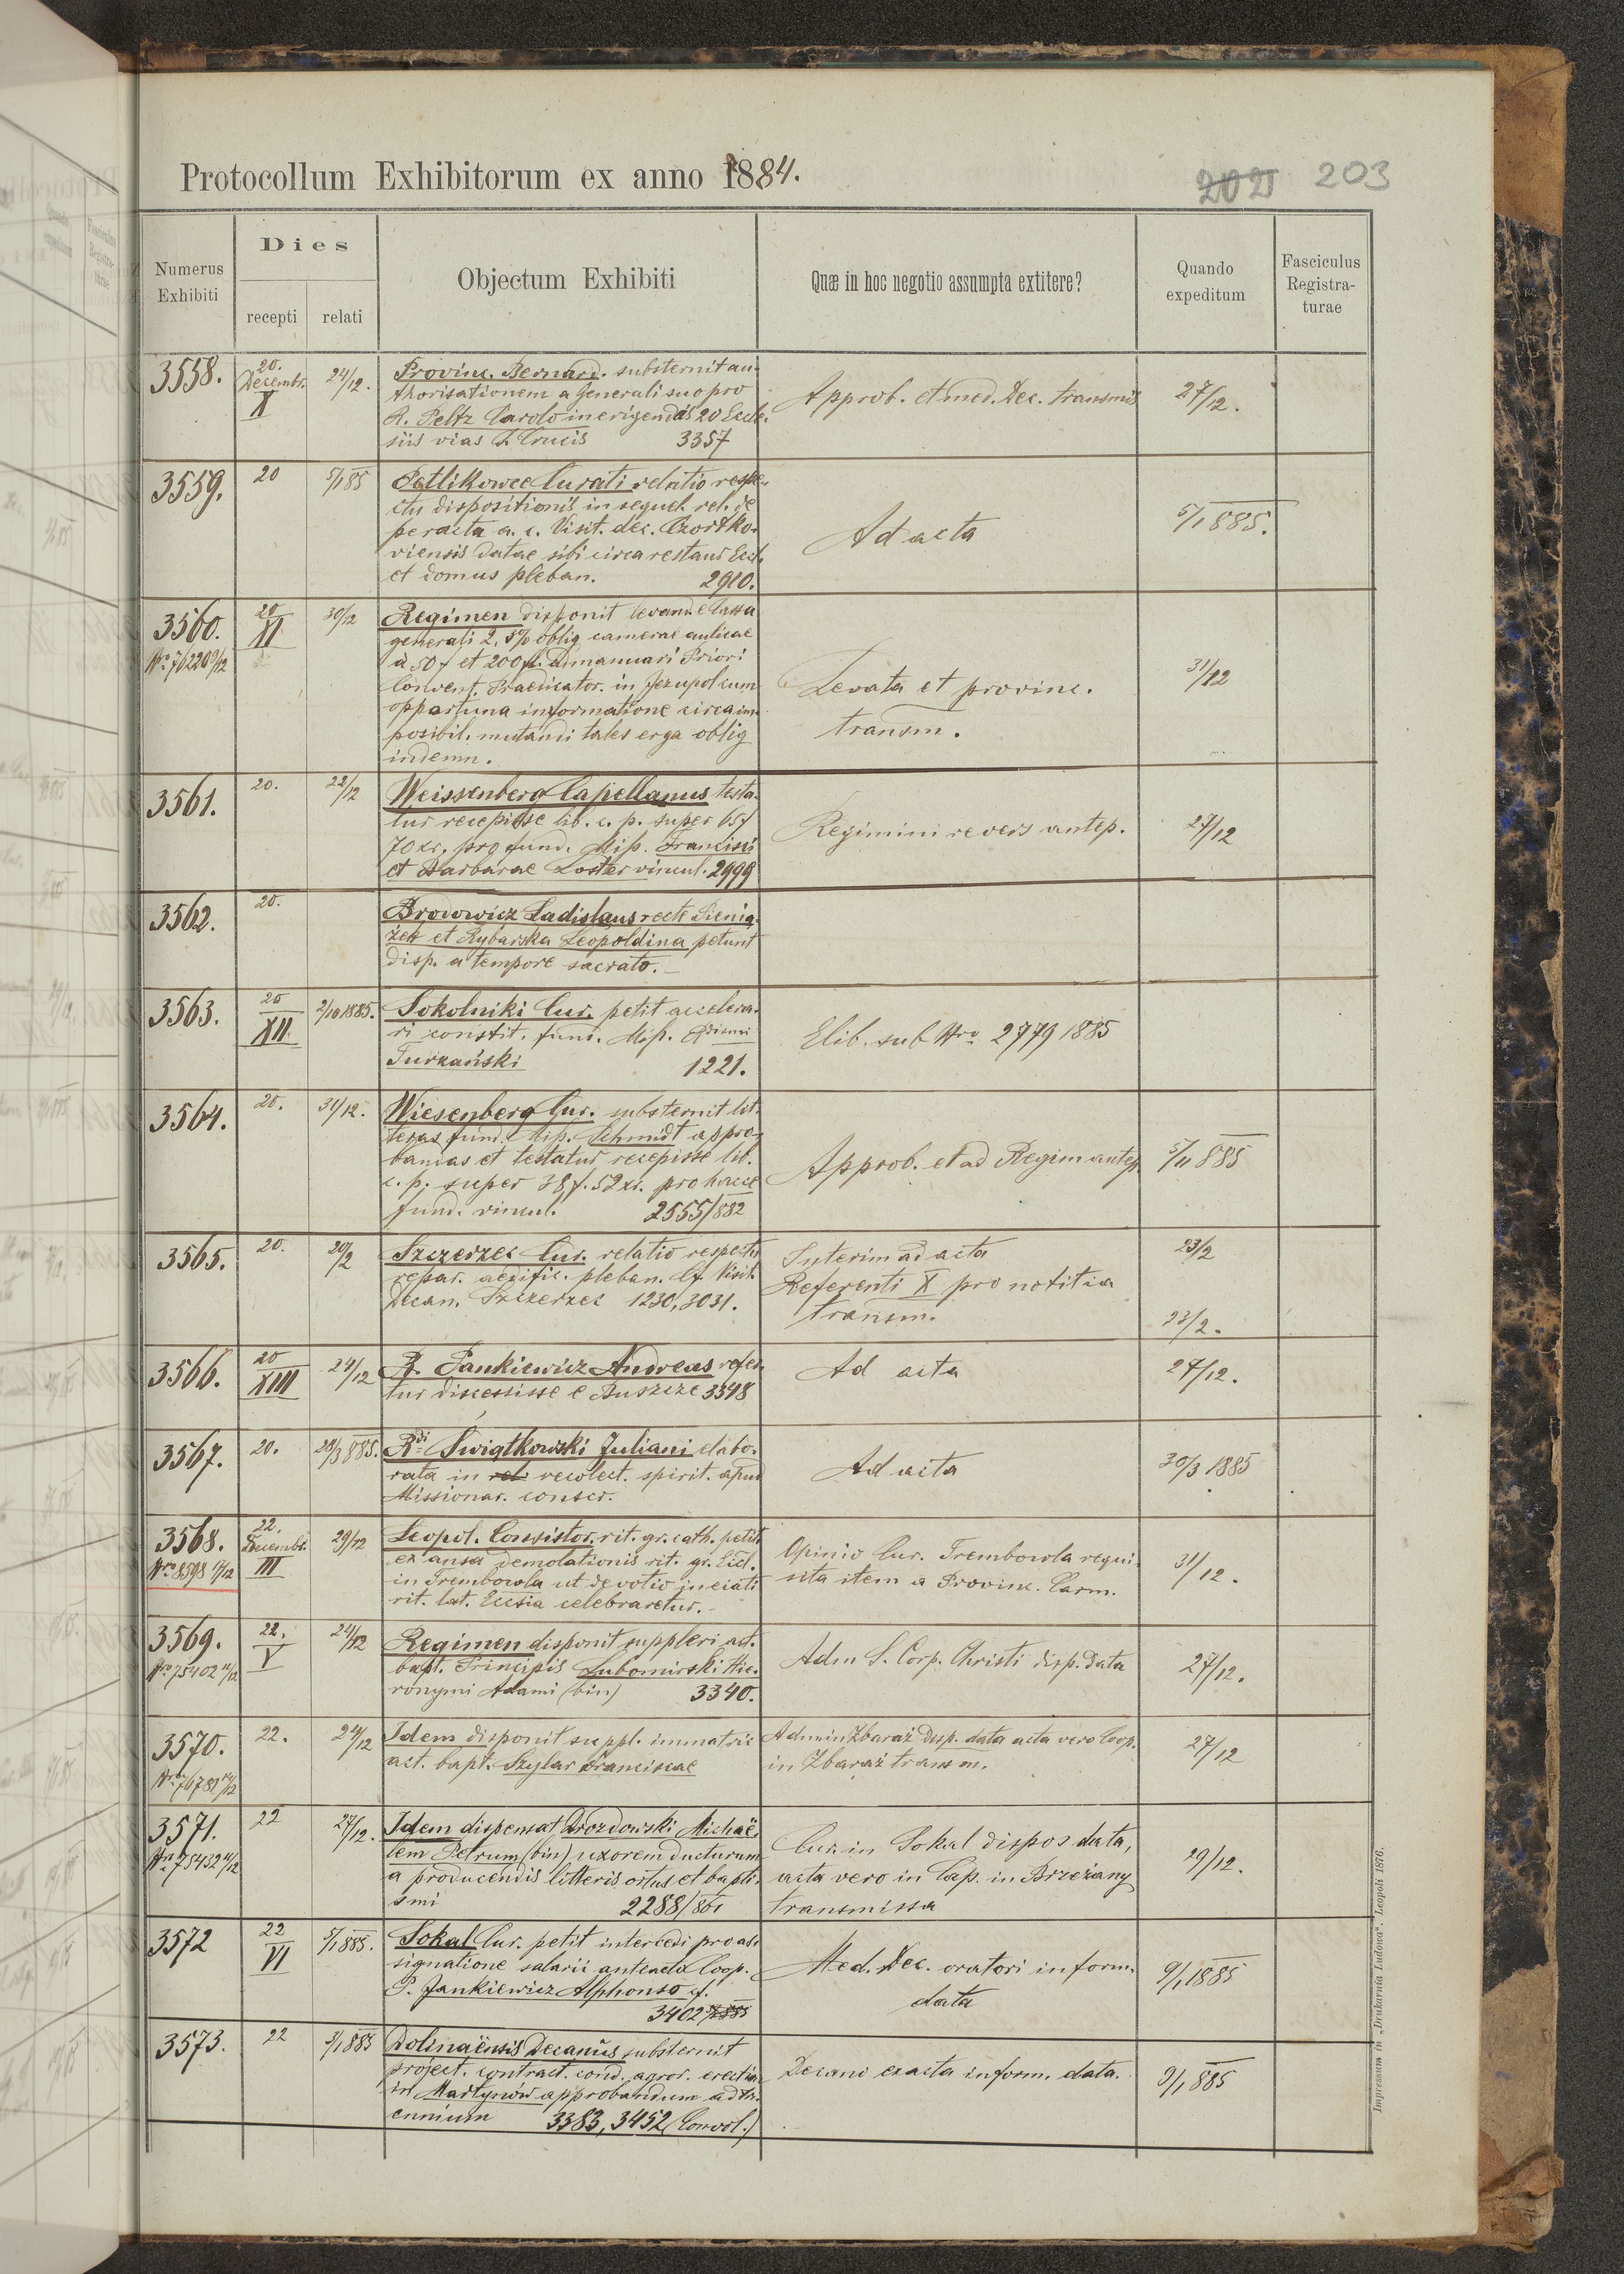 Protocollum Exhibitorum ex anno 1884.
203
Numerus Exhibiti
Dies
recepti
relati
Objectum Exhibiti
Quæ in hoc negotio assumpta extitere?
Quando expeditum
Fasciculus Registra-turae
3558.
20. Decembr. X
24/12.
Provinc. Bernard. substernit au-
thorisationem a Generali suo pro
R. Peltz Carolo in erigendis 20 Eccle-
siis vias S. Crucis 3357
Approb. et med. Dec. transmis
27/12.
3559.
20
5/1 85
Petlikowce Curati relatio respe-
ctu dispositionis in sequel. rel. de
peracta a. c. Visit. dec. Czortko-
viensis datae sibi circa restaur Eccl.
et domus pleban. 2910.
Ad acta
5/1 885.
3560.
Nro 76220
20 XI
30/12
Regimen disponit levand e Cassa
generali 2, 5% oblig camerae aulicae
à 50 f et 200 fl. Admanuari Priori
Convent. Praedicator. in Jezupol cum
opportuna informatione circa im-
posibil. mutandi tales erga oblig
indemn.
Levata et provinc.
transm.
31/12
3561.
20.
22/12
Weissenberg Capellanus testa-
tur recepisse lib. c. p. super 65 f
70 xr. pro fund. Mis. Francisci
et Barbarae Loster vincul. 2999
Regimini revers antep.
27/12
3562.
20.
Brodowicz Ladislaus recte Sienia-
żek et Rybarska Leopoldina petunt
disp. a tempore sacrato.
3563.
20 XII
2/10 1885.
Sokolniki Cur. petit accelera-
ri constit. fund. Mis.
Turzański 1221.
Elib. sub Nro 2779 1885
3564.
20.
31/12.
Wiesenberg Cur. substernit lit-
teras fund. Mis. Schmidt appro-
bandas et testatur recepisse lib.
c. p. super 38 f. 52 xr. pro hacce
fund. vincul. 2555/882
Approb. et ad Regim antep.
885
3565.
20.
20/2
Szczerzec Cur. relatio respectu
repar. aedific. pleban. Cf. Visit.
Decan. Szczerzec 1230, 3031.
Interim ad acta
Referenti X pro notitia
transm.
23/2
23/2.
3566.
20 XIII
24/12
R. Pankiewicz Andreas refer-
tur discessisse e Buszcze 3348
Ad acta
27/12.
3567.
20.
28/3 885.
Rdi Świątkowski Juliani elabo-
rata in recolect. spirit. apud
Missionar. conscr.
Ad acta
30/3 1885
3568.
Nro 8598
22. Decembr. III
29/12
Leopol. Consistor. rit. gr. cath. petit
ex ansa demolationis rit. gr. Eccl.
in Trembowla ut devotio in eiati
rit. lat. Ecclsia celebraretur.
Opinio Cur. Trembowla requi-
sita item a Provinc. Carm.
31/12.
3569.
Nro 75402
22. V
24/12
Regimen disponit suppleri act.
bapt. Principis Lubomirski Hie-
ronymi Adami (bin) 3340.
Adm S. Corp. Christi disp. data
27/12.
3570.
22.
24/12
Idem disponit suppl. immatric
act. bapt. Szylar Franciscae
Admin Zbaraż disp. data acta vero Coop.
in Zbaraż transm.
27/12
3571.
Nro 75432
22
27/12.
Idem dispensat Drozdowski Michaë-
lem Petrum (bin) uxorem ducturum
a producendis litteris ortus et bapti-
smi 2288/861
Cur. in Sokal dispos. data,
acta vero in Cap. in Brzeżany
transmissa
29/12.
3572
22 VI
5/1 885.
Sokal Cur. petit intercedi pro as-
signatione salarii anteacto Coop.
P. Jankiewicz Alphonso cf.
3402
Med. Dec. oratori inform.
data
9/1 1885
3573.
22
3/1 885
Dolinaënsis Decanus substernit
project. contract. cond. agror. erectia
in Martynów approbandum ad tri-
ennium 3383, 3452 (Convol.)
Decano exacta inform. data.
9/1 885
Impressum in „Drukarnia Ludowa“. Leopoli 1876.